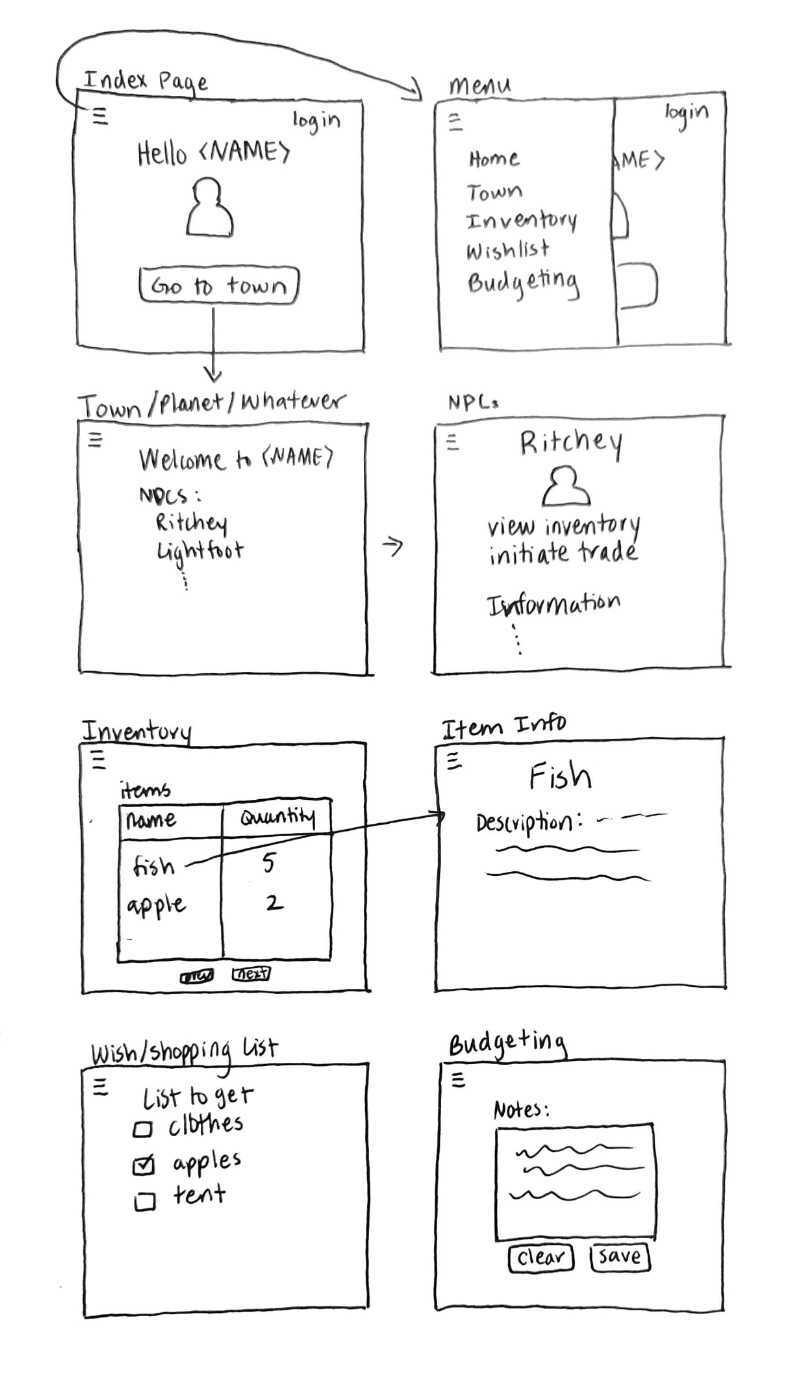 Index Page
login
Hello <NAME>
Go to town
Menu
login
Home
AME>
Town
Inventory
Wishlist
Budgeting
Town/Planet/Whatever
Welcome to <NAME>
NPCS:
Ritchey
Lightfoot
NPCs
Ritchey
view inventory
initiate trade
Information
Inventory
items
name Quantity
fish 5
apple 2
prev next
Item Info
Fish
Description:
Wish/shopping List
List to get
clothes
apples
tent
Budgeting
Notes:
clear save